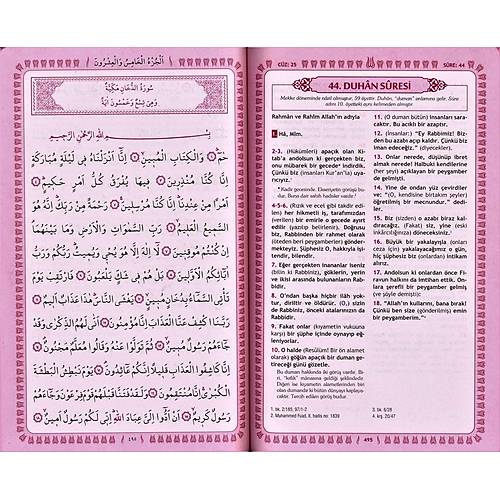 الجزء الخامس والعشرون
سورة الدخان مكية
وهي تسع وخمسون آية
بسم الله الرحمن الرحيم
حم والكتاب المبين إنا أنزلناه في ليلة مباركة
إنا كنا منذرين فيها يفرق كل أمر حكيم
أمرا من عندنا إنا كنا مرسلين رحمة من ربك إنه هو
السميع العليم رب السموات والأرض وما بينهما
إن كنتم موقنين لا إله إلا هو يحيي ويميت ربكم ورب
آبائكم الأولين بل هم في شك يلعبون فارتقب يوم
تأتي السماء بدخان مبين يغشى الناس هذا عذاب أليم
ربنا اكشف عنا العذاب إنا مؤمنون أنى لهم الذكرى وقد
جاءهم رسول مبين ثم تولوا عنه وقالوا معلم مجنون
إنا كاشفوا العذاب قليلا إنكم عائدون يوم نبطش البطشة
الكبرى إنا منتقمون ولقد فتنا قبلهم قوم فرعون وجاءهم
رسول كريم أن أدوا إلي عباد الله إني لكم رسول أمين
CÜZ: 25
SÛRE: 44
44. DUHÂN SÛRESİ
Mekke döneminde nâzil olmuştur, 59 âyettir. Duhân, "duman" anlamına gelir. Sûre
adını 10. âyetteki aynı kelimeden almıştır.
Rahmân ve Rahîm Allah'ın adıyla
1. Hâ, Mîm.
2-3. (Hükümleri) apaçık olan Kitab'a
andolsun ki gerçekten biz,
onu mübarek bir gecede¹ indirdik.
Çünkü biz (insanları Kur'an'la) uyarıcıyız.
4-5-6. (Rızık ve ecel gibi takdir edilen)
her hikmetli iş, tarafımızdan
(verilen) bir emirle o gecede ayırt
edilir, Rabbinden rahmet olarak
(öteden beri peygamberleri) göndermekteyiz.
Şüphesiz O, hakkıyla işitendir,
bilendir.
7. Eğer gerçekten inananlar iseniz
(bilin ki Rabbiniz), göklerin, yerin
ve ikisi arasında bulunanların da
Rabbidir.
8. O'ndan başka hiçbir ilâh yoktur,
diriltir ve öldürür. O, sizin
de Rabbiniz, önceki atalarınızın da
Rabbidir.
9. Fakat onlar (kıyametin vukuuna
karşı) bir şüphe içinde oynayıp eğleniyorlar.
10. O halde (Resûlüm) Bir ön alamet
olarak) göğün apaçık bir duman
getireceği günü gözetle.
11. (O duman bütün) insanları saracaktır.
Bu acıklı bir azaptır.
12. (İnsanlar:) "Ey Rabbimiz! Bizden
bu azabı açıp kaldır. Çünkü biz
iman edeceğiz." (diyecekler).
13. Onlar nerede, düşünüp ibret
almak nerede! Halbuki kendilerine
(her şeyi) açıklayan bir peygamber
de gelmişti.
14. Yine de ondan yüz çevirdiler
öğretilmiş bir mecnundur." dediler.
15. Biz (sizden) o azabı biraz kaldıracağız.
Fakat) siz, yine (eski
inkârcılığınıza) döneceksiniz.³
16. Büyük bir yakalayışla (onları
ceza için) yakalayacağımız o gün,
hiç şüphesiz biz (onlardan) intikam
alırız.
17. Andolsun ki onlardan önce Firavun
halkını da imtihan ettik. Onlara
şerefli bir peygamber gelmiş
18. "Allah'ın kullarını, bana bırak!
Çünkü ben size (gönderilmiş) emin
bir peygamberim."⁴
1. bk. 2/185; 97/1-2
3. bk. 6/28
4. krş. 20/47
495